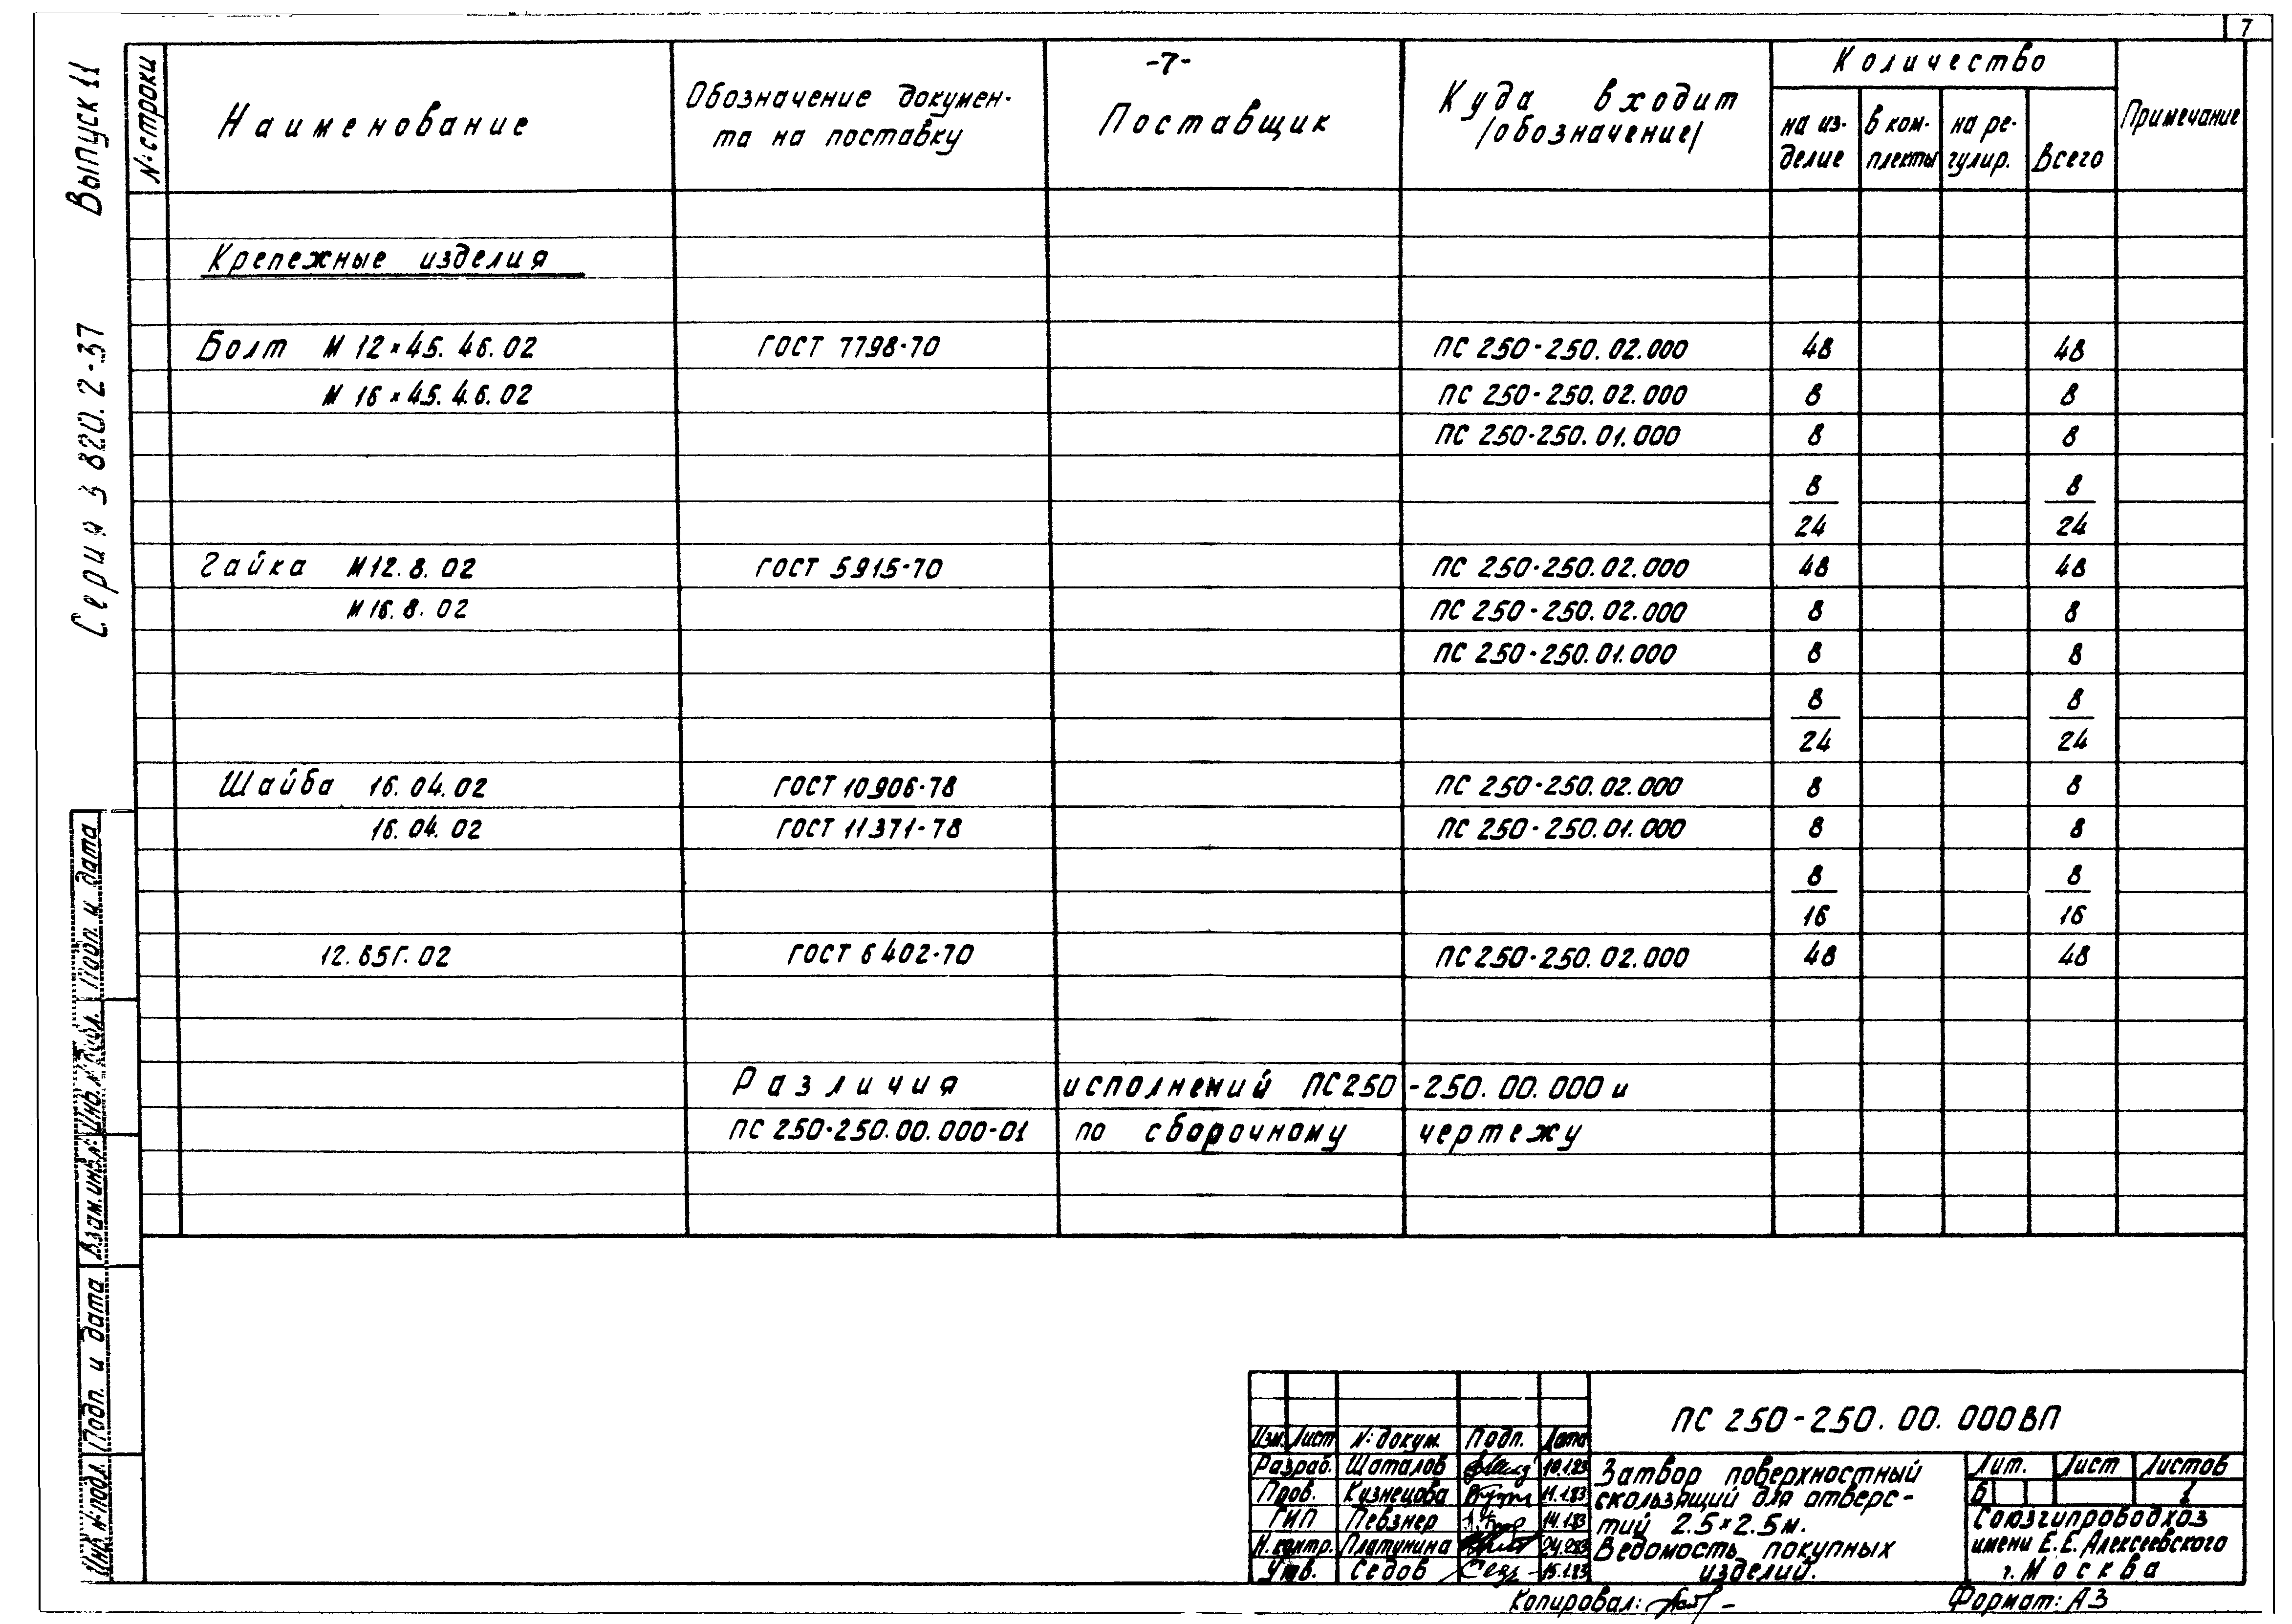 7
-7-
Выпуск 11
Серия 3 820.2-37
N: строки
Наименование
Обозначение докумен-
та на поставку
Поставщик
Куда входит
/обозначение/
Количество
на из-
делие
в ком-
плекты
на ре-
гулир.
Всего
Примечание
Крепежные изделия
Болт М 12×45. 46. 02 ГОСТ 7798-70 ПС 250-250. 02. 000 48 48
М 16×45. 4.6. 02 ПС 250-250. 02. 000 8 8
ПС 250-250. 01. 000 8 8
8 8
24 24
Гайка М12. 8. 02 ГОСТ 5915-70 ПС 250-250. 02. 000 48 48
М16. 8. 02 ПС 250-250. 02. 000 8 8
ПС 250-250. 01. 000 8 8
8 8
24 24
Шайба 16. 04. 02 ГОСТ 10906-78 ПС 250-250. 02. 000 8 8
16. 04. 02 ГОСТ 11371-78 ПС 250-250. 01. 000 8 8
8 8
16 16
12. 65Г. 02 ГОСТ 6402-70 ПС 250-250. 02. 000 48 48
Различия исполнений ПС250-250. 00. 000 и
ПС 250-250. 00. 000-01 по сборочному чертежу
Подп. и дата
Взам. инв. N:
Подп. и дата
Инв. N: подл.
ПС 250-250. 00. 000ВП
Изм. Лист N: докум. Подп. Дата
Разраб. Шаталов 10.1.83
Пров. Кузнецова 11.1.83
ГИП Певзнер 14.1.83
Н. контр. Платунина 24.2.83
Утв. Седов 15.1.83
Затвор поверхностный
скользящий для отверс-
тий 2.5×2.5м.
Ведомость покупных
изделий.
Лит. Лист Листов
Б 1
Союзгипроводхоз
имени Е.Е.Алексеевского
г. Москва
Копировал: Формат: А3